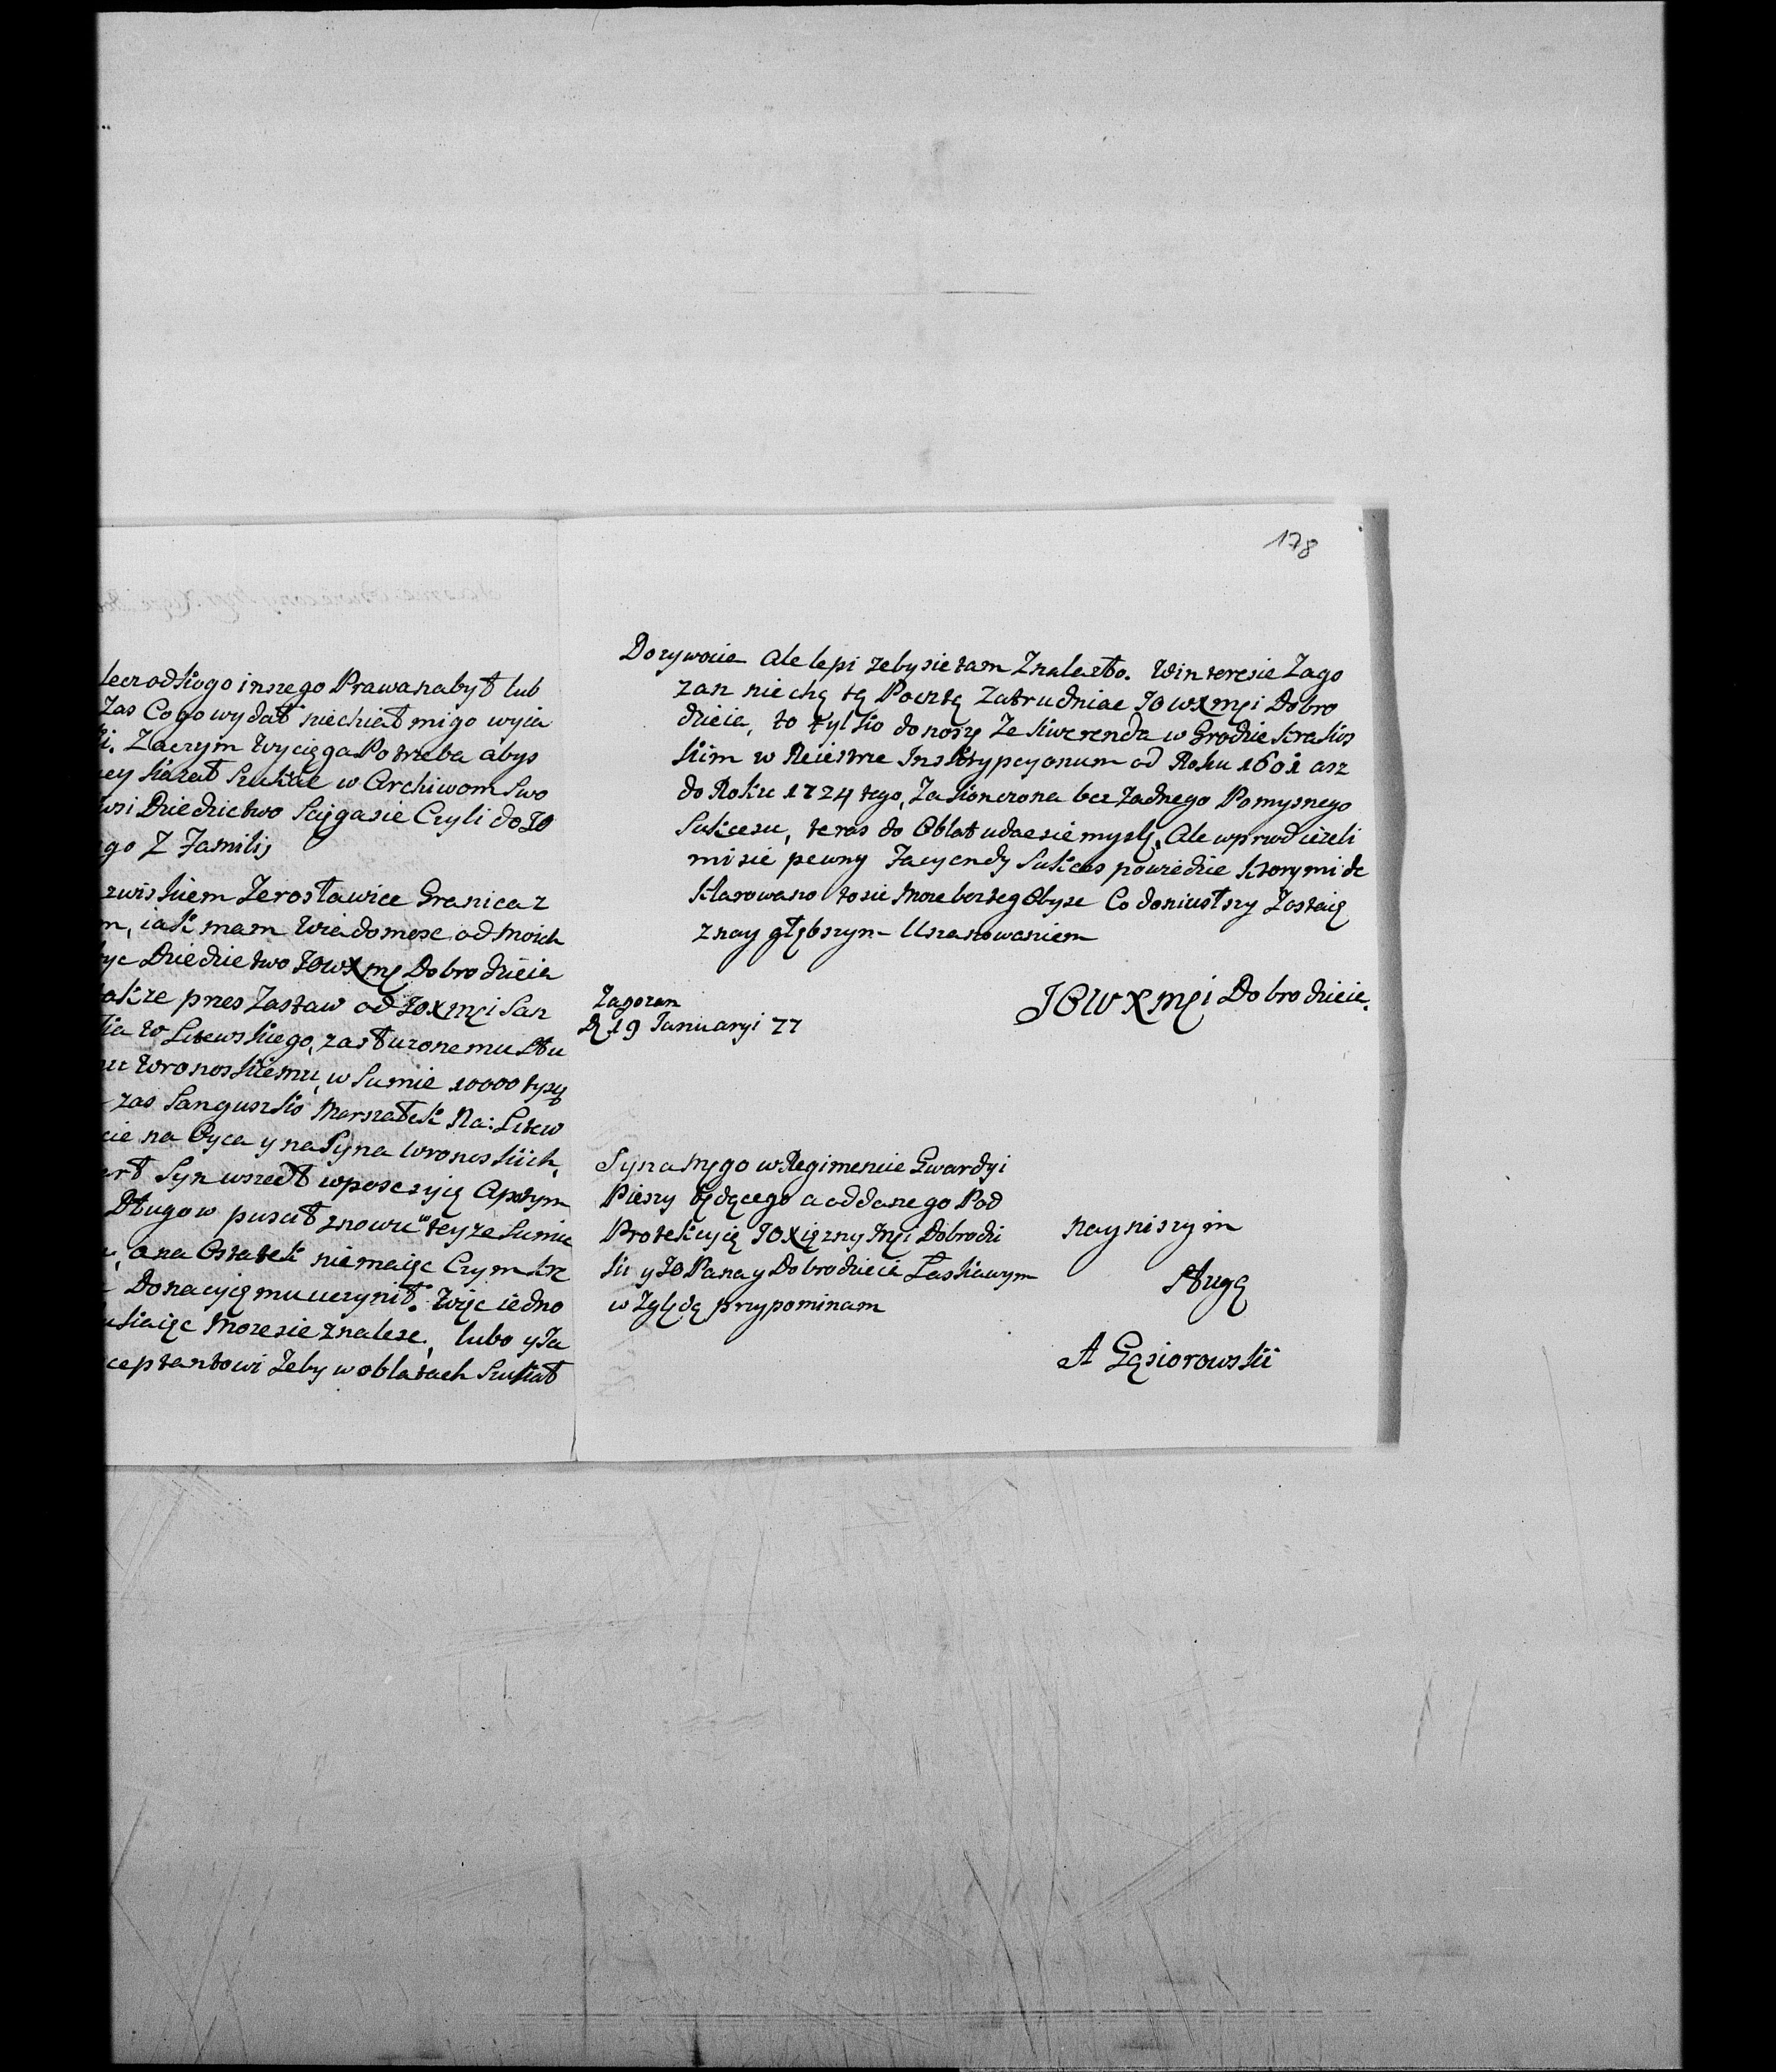 lecz od kogo inszego Prawa nabyt lub
Zas Co go wydat niechciat mi go wyia
Zaczym Wyciąga Potrzeba abys
kazat Szukac w Archiwom Swo
Dziedzictwo Sciągasie Czyli do JO
go Z Familij
zwiskiem Zerosławice Granica z
iak mam Wiadomosc od Moich
Dziedzictwo JOWXmći Dobrodzieia
akze przes Zastaw od JOXmći San
Litewskiego, zasłuzonemu Słu
Woronoskiemu, w Sumie 10000 tysy
zas Sanguszko Marszałek Na: Litew
cie na Oyca y na Syna Woronoskich,
Syn wszedt w posesyię A potym
Długow puscit znowu w teyze Sumie
a na Ostatek niemaiąc Czym
Donacyię mu uczynit. Więc iedno
Moze sie znalesc, lubo y Ja
ceptantowi Zeby w oblatach Szukat
178
Dozywocie Ale lepi zeby sie tam Znalazło. W interesie Zago
zan nie chę tą Pocztą Zatrudniac JOWXmći Dobro
dzieia, to tylko donoszę Ze kwerenda w Grodzie krakos
kim w Reiestrze Inskrypcyonum od Roku 1601 asz
do Roku 1724 tego, Zakonczona bez Zadnego Pomysnego
Sukcesu, teras do Oblat udac sie myslę, Ale wprwod iezeli
mi sie pewny Facyendy Sukces powiedzie ktory mi de
klarowano to sie Moze bez teg Obyse Co doniosłszy Zostaię
z nay głębszym Uszanowaniem
JOWXmći Dobrodzieia.
Zagozan
D. 19 Januaryi 77
Syna Mego w Regimencie Gwardyi
Pieszy będącego a oddanego Pod
Protekcyię JOXiężny Mći Dobrodzi
ki y JO Pana y Dobrodzieia Łaskawym
w Zględą przypominam
nayniszym
Sługą
A Gąsiorowski